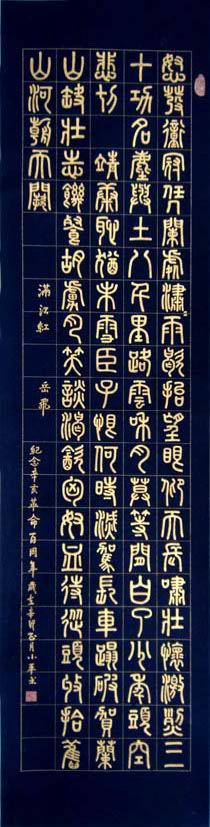 怒發衝冠凭闌處瀟〃雨歇抬望眼仰天長嘯壯懷激烈三
十功名塵與土八千里路雲和月莫等閒白了少年頭空
悲切 靖康恥猶未雪臣子恨何時滅駕長車踏破賀蘭
山缺壯志饑餐胡虜肉笑談渴飲匈奴血待從頭收拾舊
山河朝天闕
滿江紅 岳飛
紀念辛亥革命百周年 歲在辛卯正月小華书